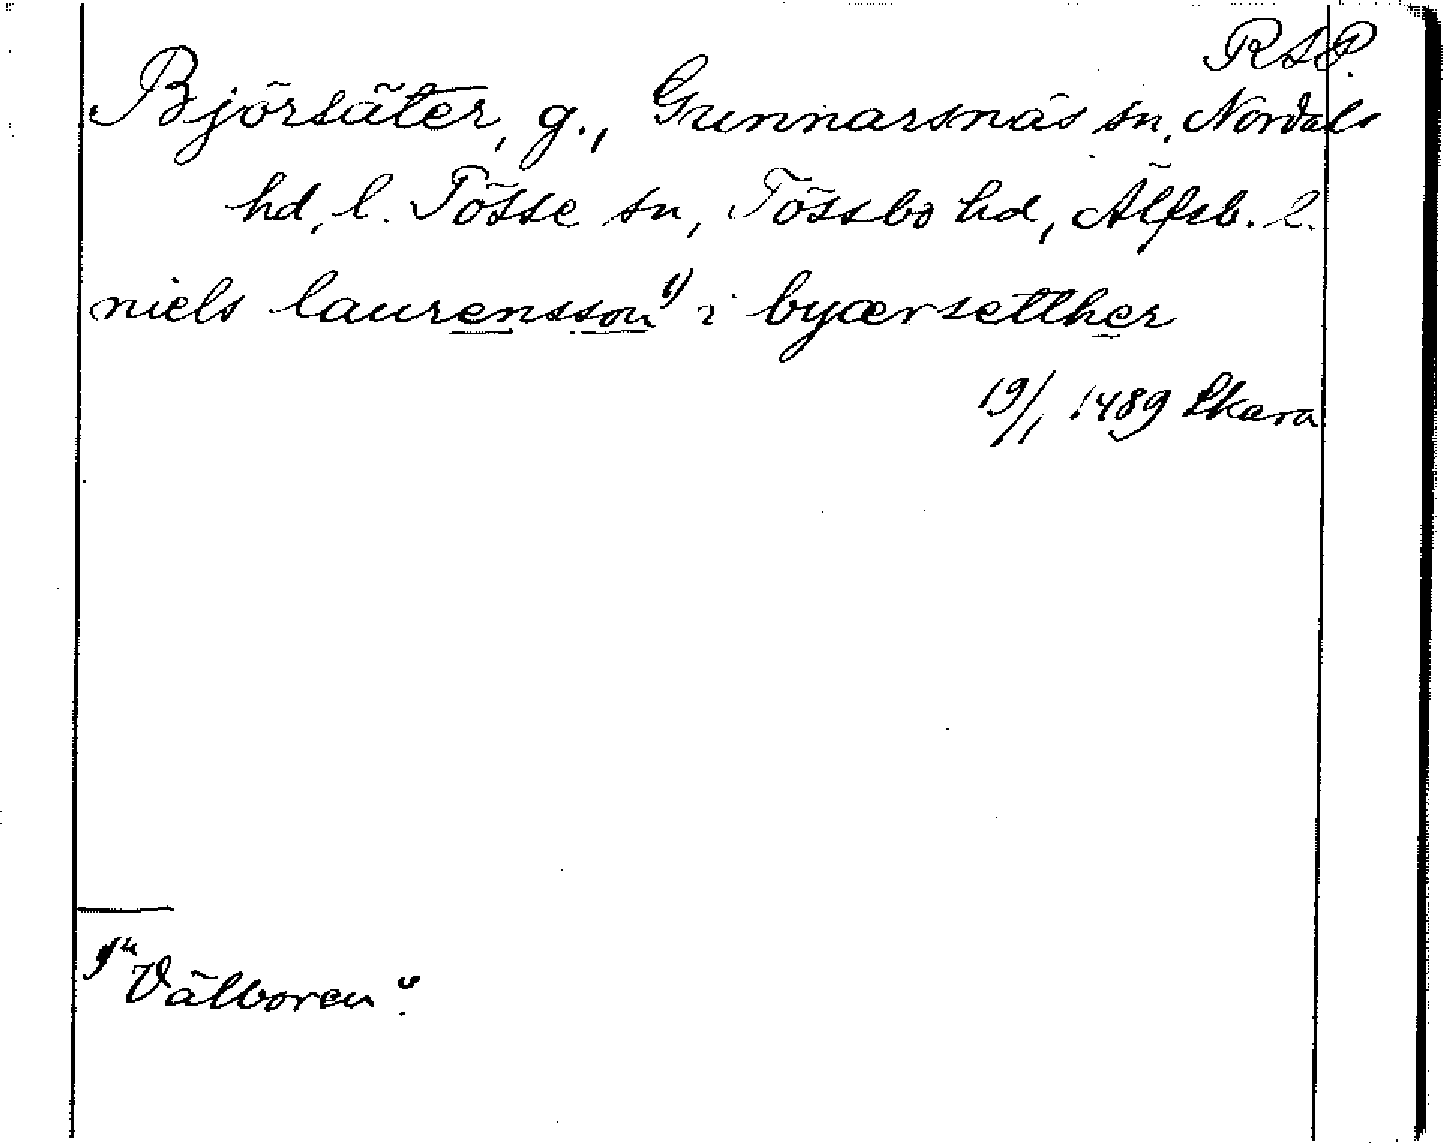 RAP.
Björsäter, g., Gunnarsnäs sn, Nordals
hd, l. Tösse sn, Tössbo hd, Älfsb. l.
niels laurensson 1) i byærsetther
19/1 1489 Skara
1) "Välboren".